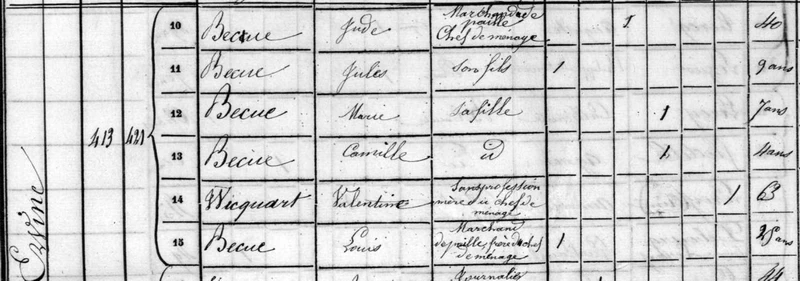 10 Becue Jude Marchand de paille Chef de ménage 1 40
11 Becue Jules Son fils 1 9 ans
12 Becue Marie Sa fille 1 7 ans
413 421
13 Becue Camille id 1 4 ans
14 Wicquart Valentine Sans profession mère du chef de ménage 1 63
15 Becue Louis Marchand de paille, frère du chef de ménage 1 25 ans
Journalier